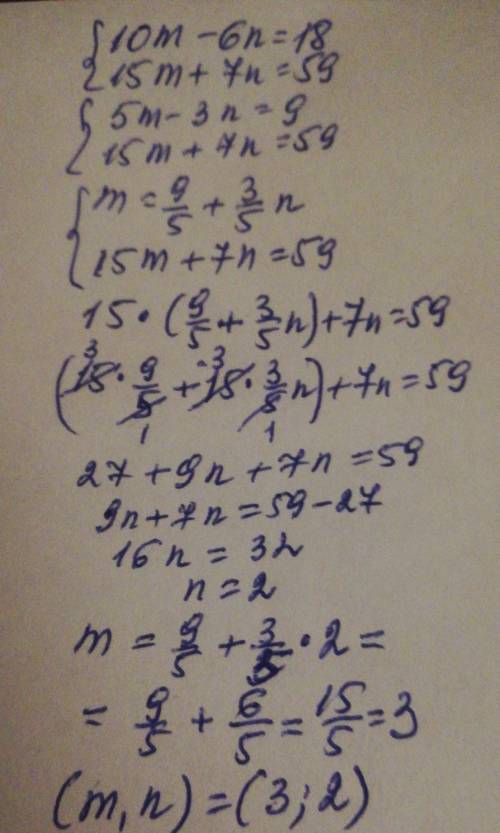 {10m - 6n = 18
15m + 7n = 59
{5m - 3n = 9
15m + 7n = 59
{m = 9/5 + 3/5 n
15m + 7n = 59
15 · (9/5 + 3/5 n) + 7n = 59
(15 · 9/5 + 15 · 3/5 n) + 7n = 59
27 + 9n + 7n = 59
9n + 7n = 59 - 27
16n = 32
n = 2
m = 9/5 + 3/5 · 2 =
= 9/5 + 6/5 = 15/5 = 3
(m, n) = (3; 2)